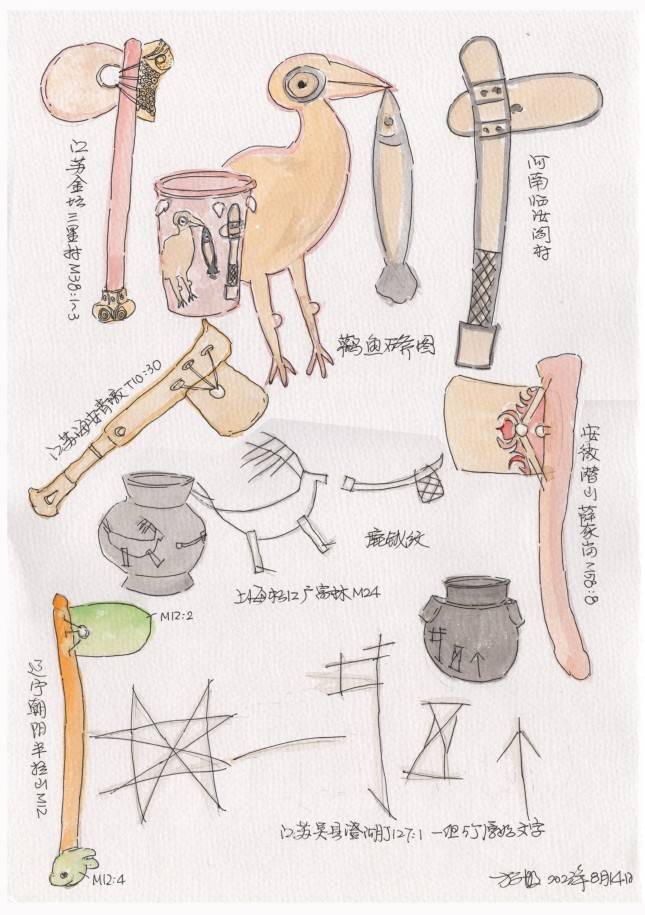 江苏金坛三星村M38:1~3
河南临汝阎村
鹳鱼石斧图
江苏海安青墩T10:30
安徽潜山薛家岗M58:8
鹿钺纹
上海松江广富林M24
M12:2
辽宁朝阳半拉山M12
M12:4
江苏吴县澄湖J127:1
2023年8月14日